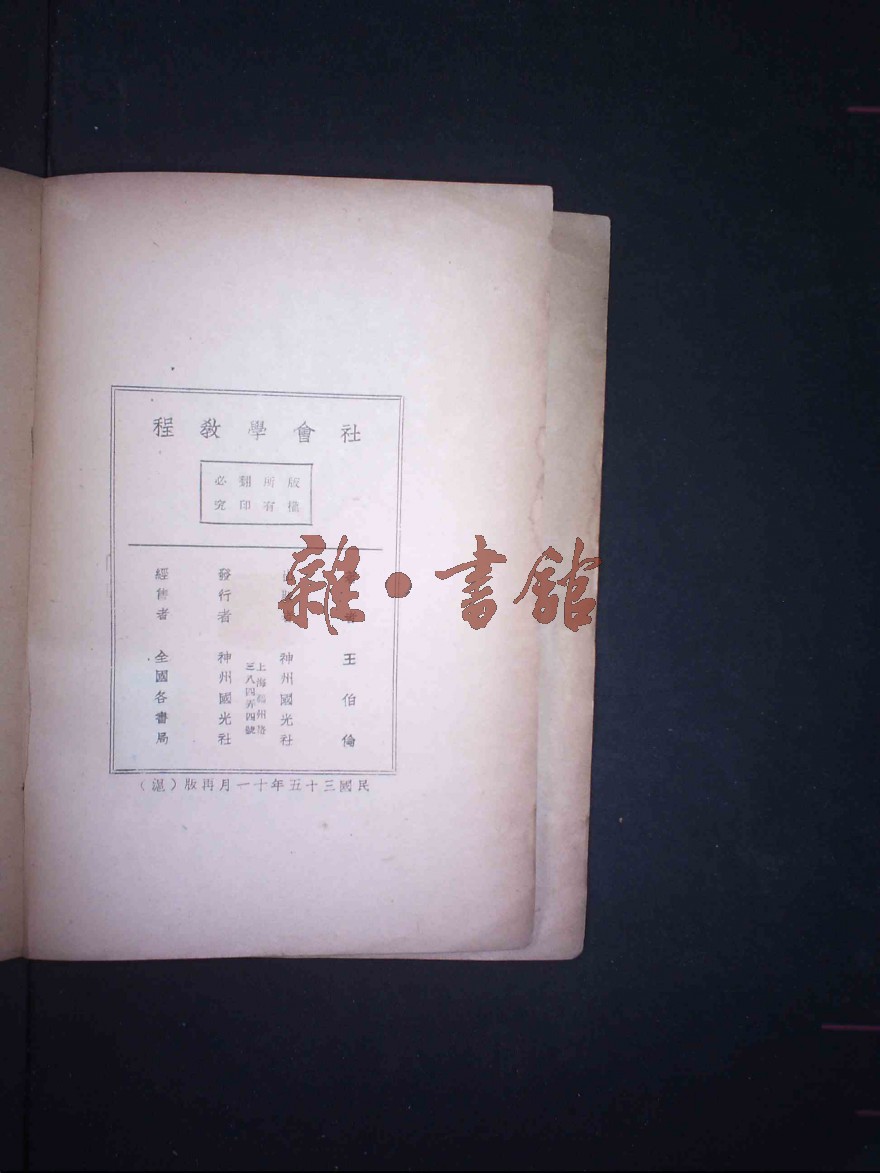 社會學教程
版權
所有
翻印
必究
王伯倫
神州國光社
上海福州路
三八四弄四號
發行者 神州國光社
經售者 全國各書局
民國三十五年十一月再版（滬）
雜•書館